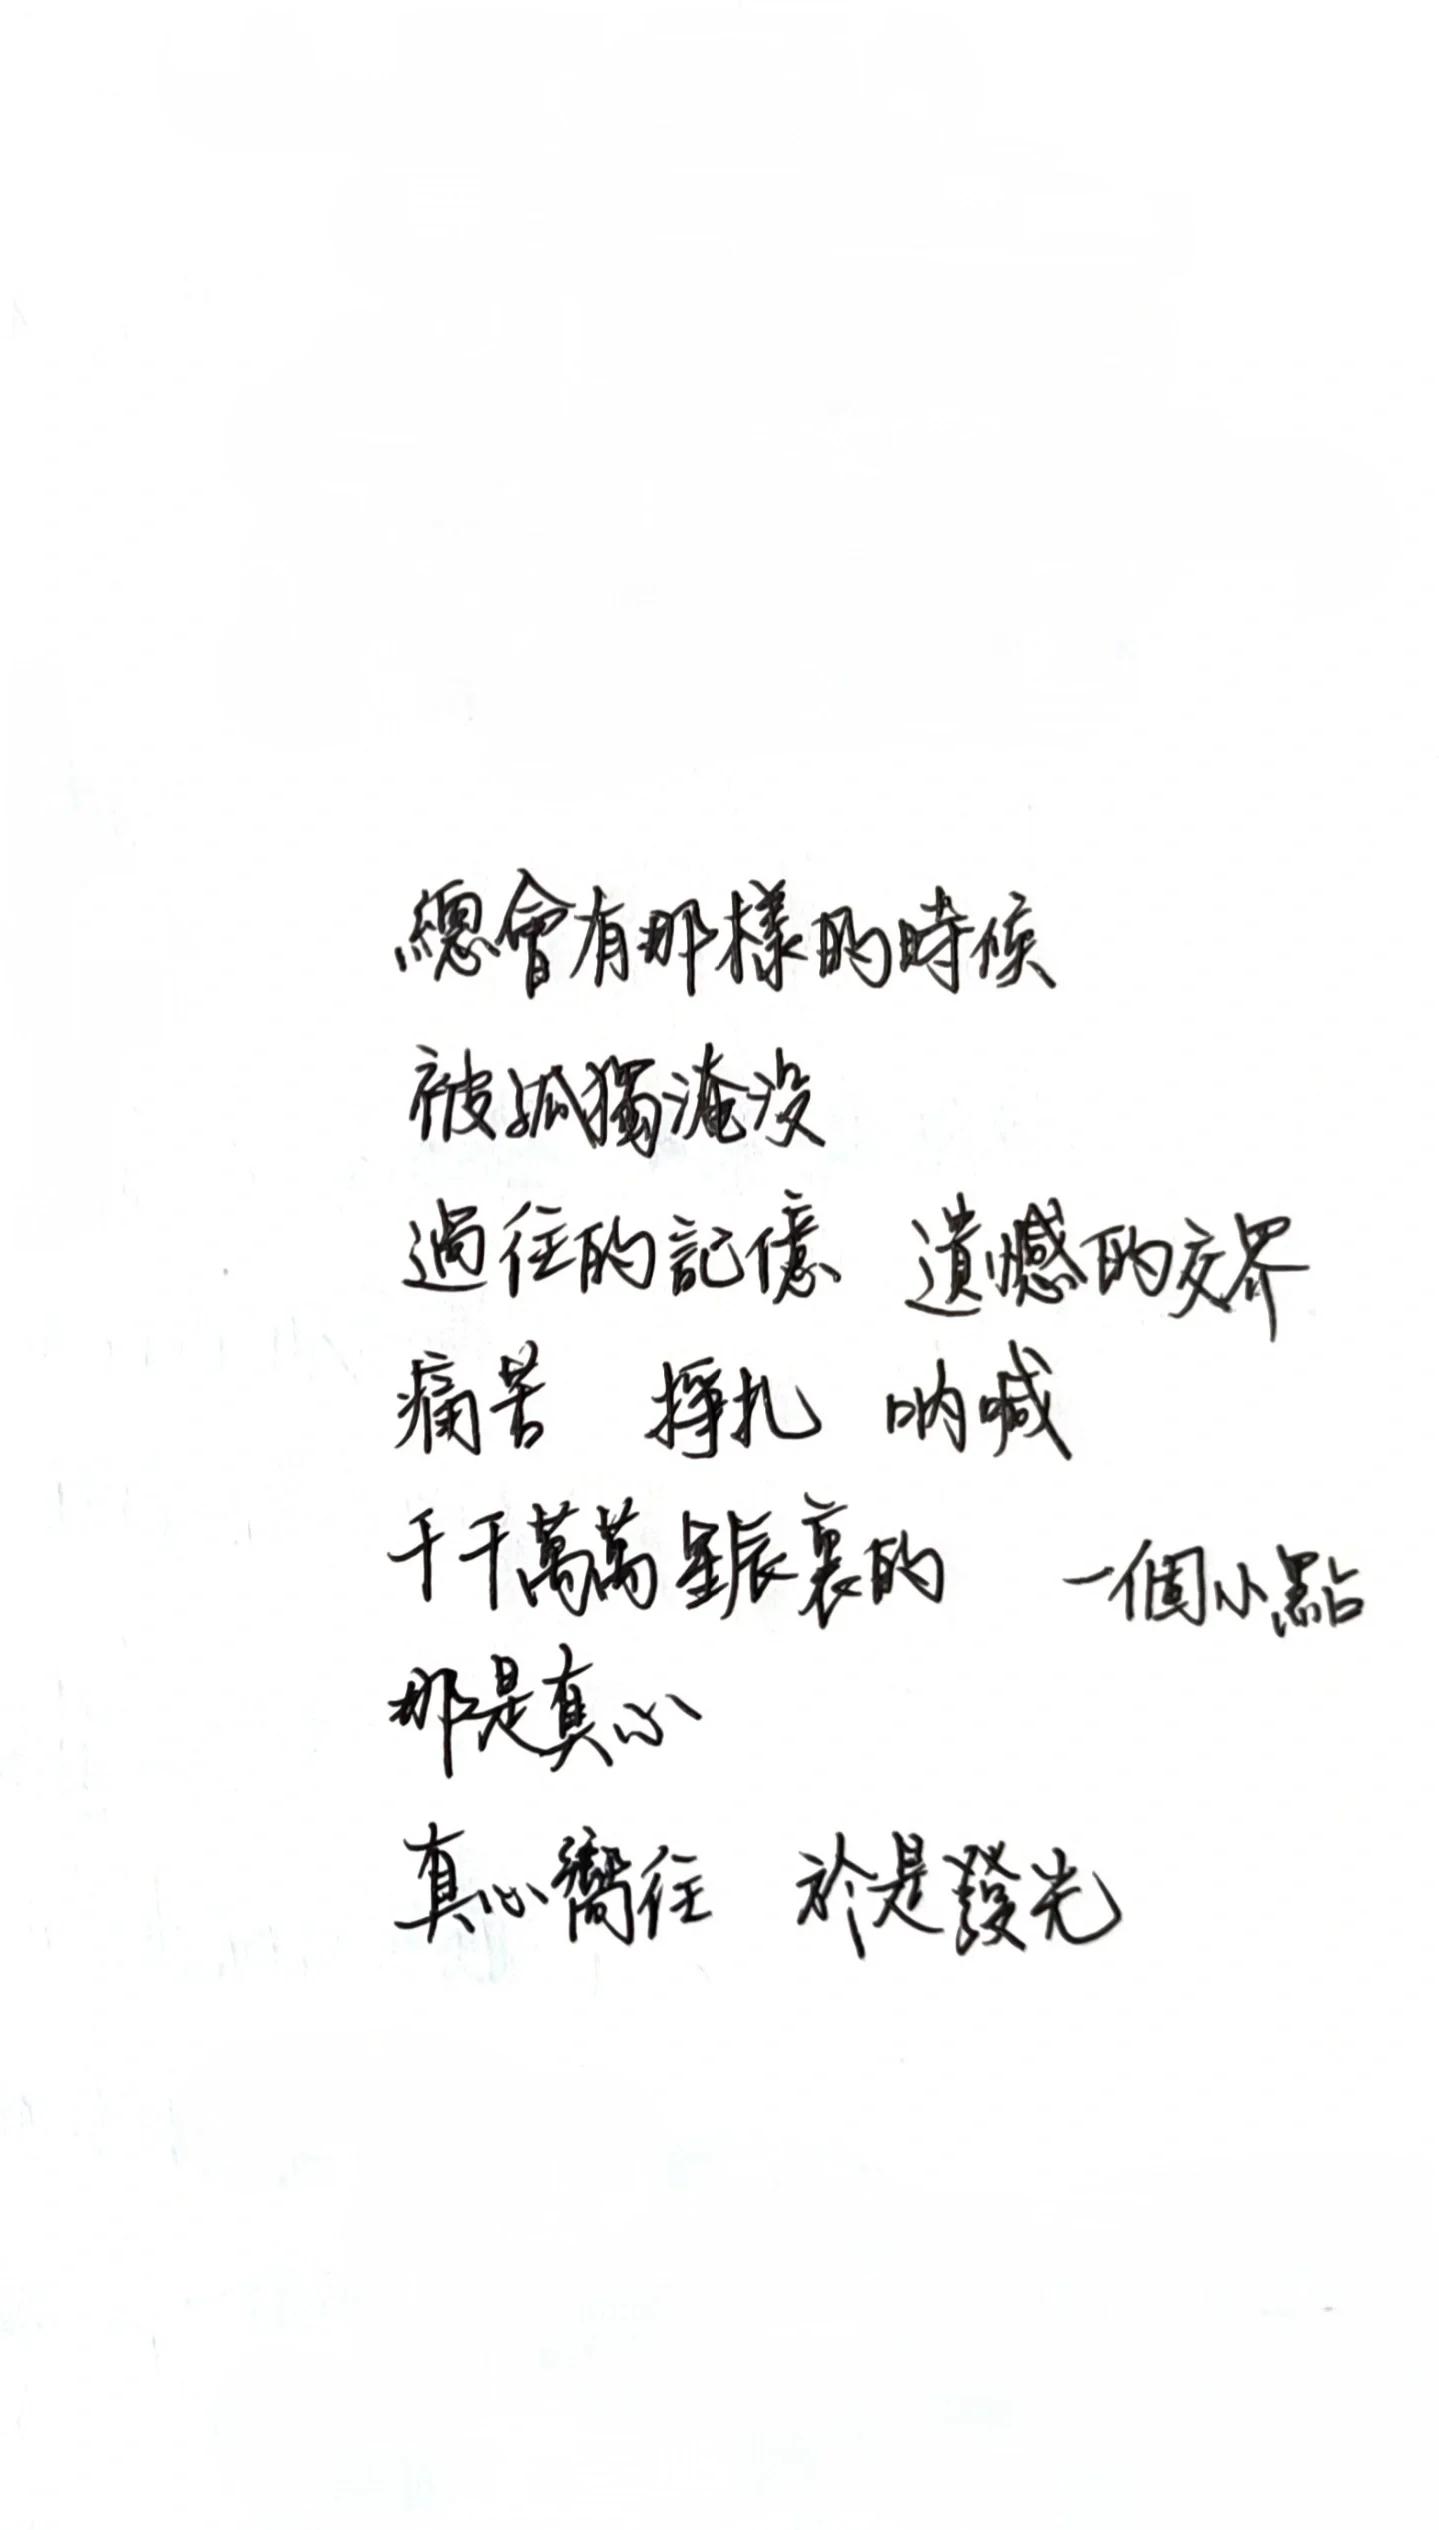 總會有那樣的時候
被孤獨淹没
過往的記憶 遺憾的交界
痛苦 掙扎 呐喊
千千萬萬星辰裏的 一個小點
那是真心
真心嚮往 於是發光